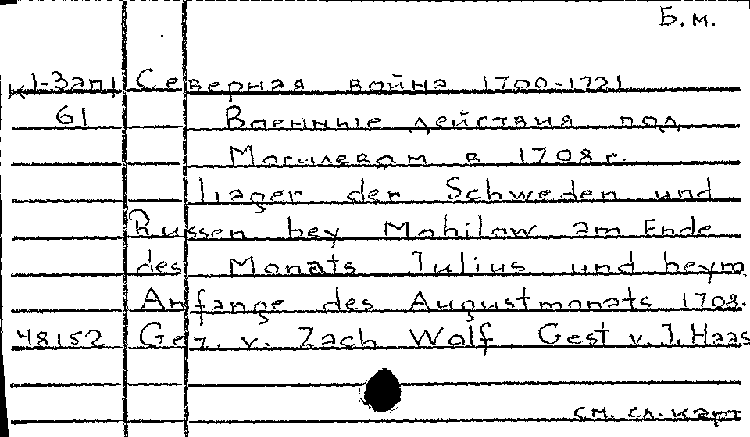 Б.м.
К1-Зап Северная война 1700-1721
61 Военные действия под
Могилевом в 1708 г.
Lager der Schweden und
Russen bey Mohilow am Ende
des Monats Julius und beym
Anfange des Augustmonats 1708.
48152 Gez. v. Zach Wolf. Gest v. J. Haas
см. сл. карт